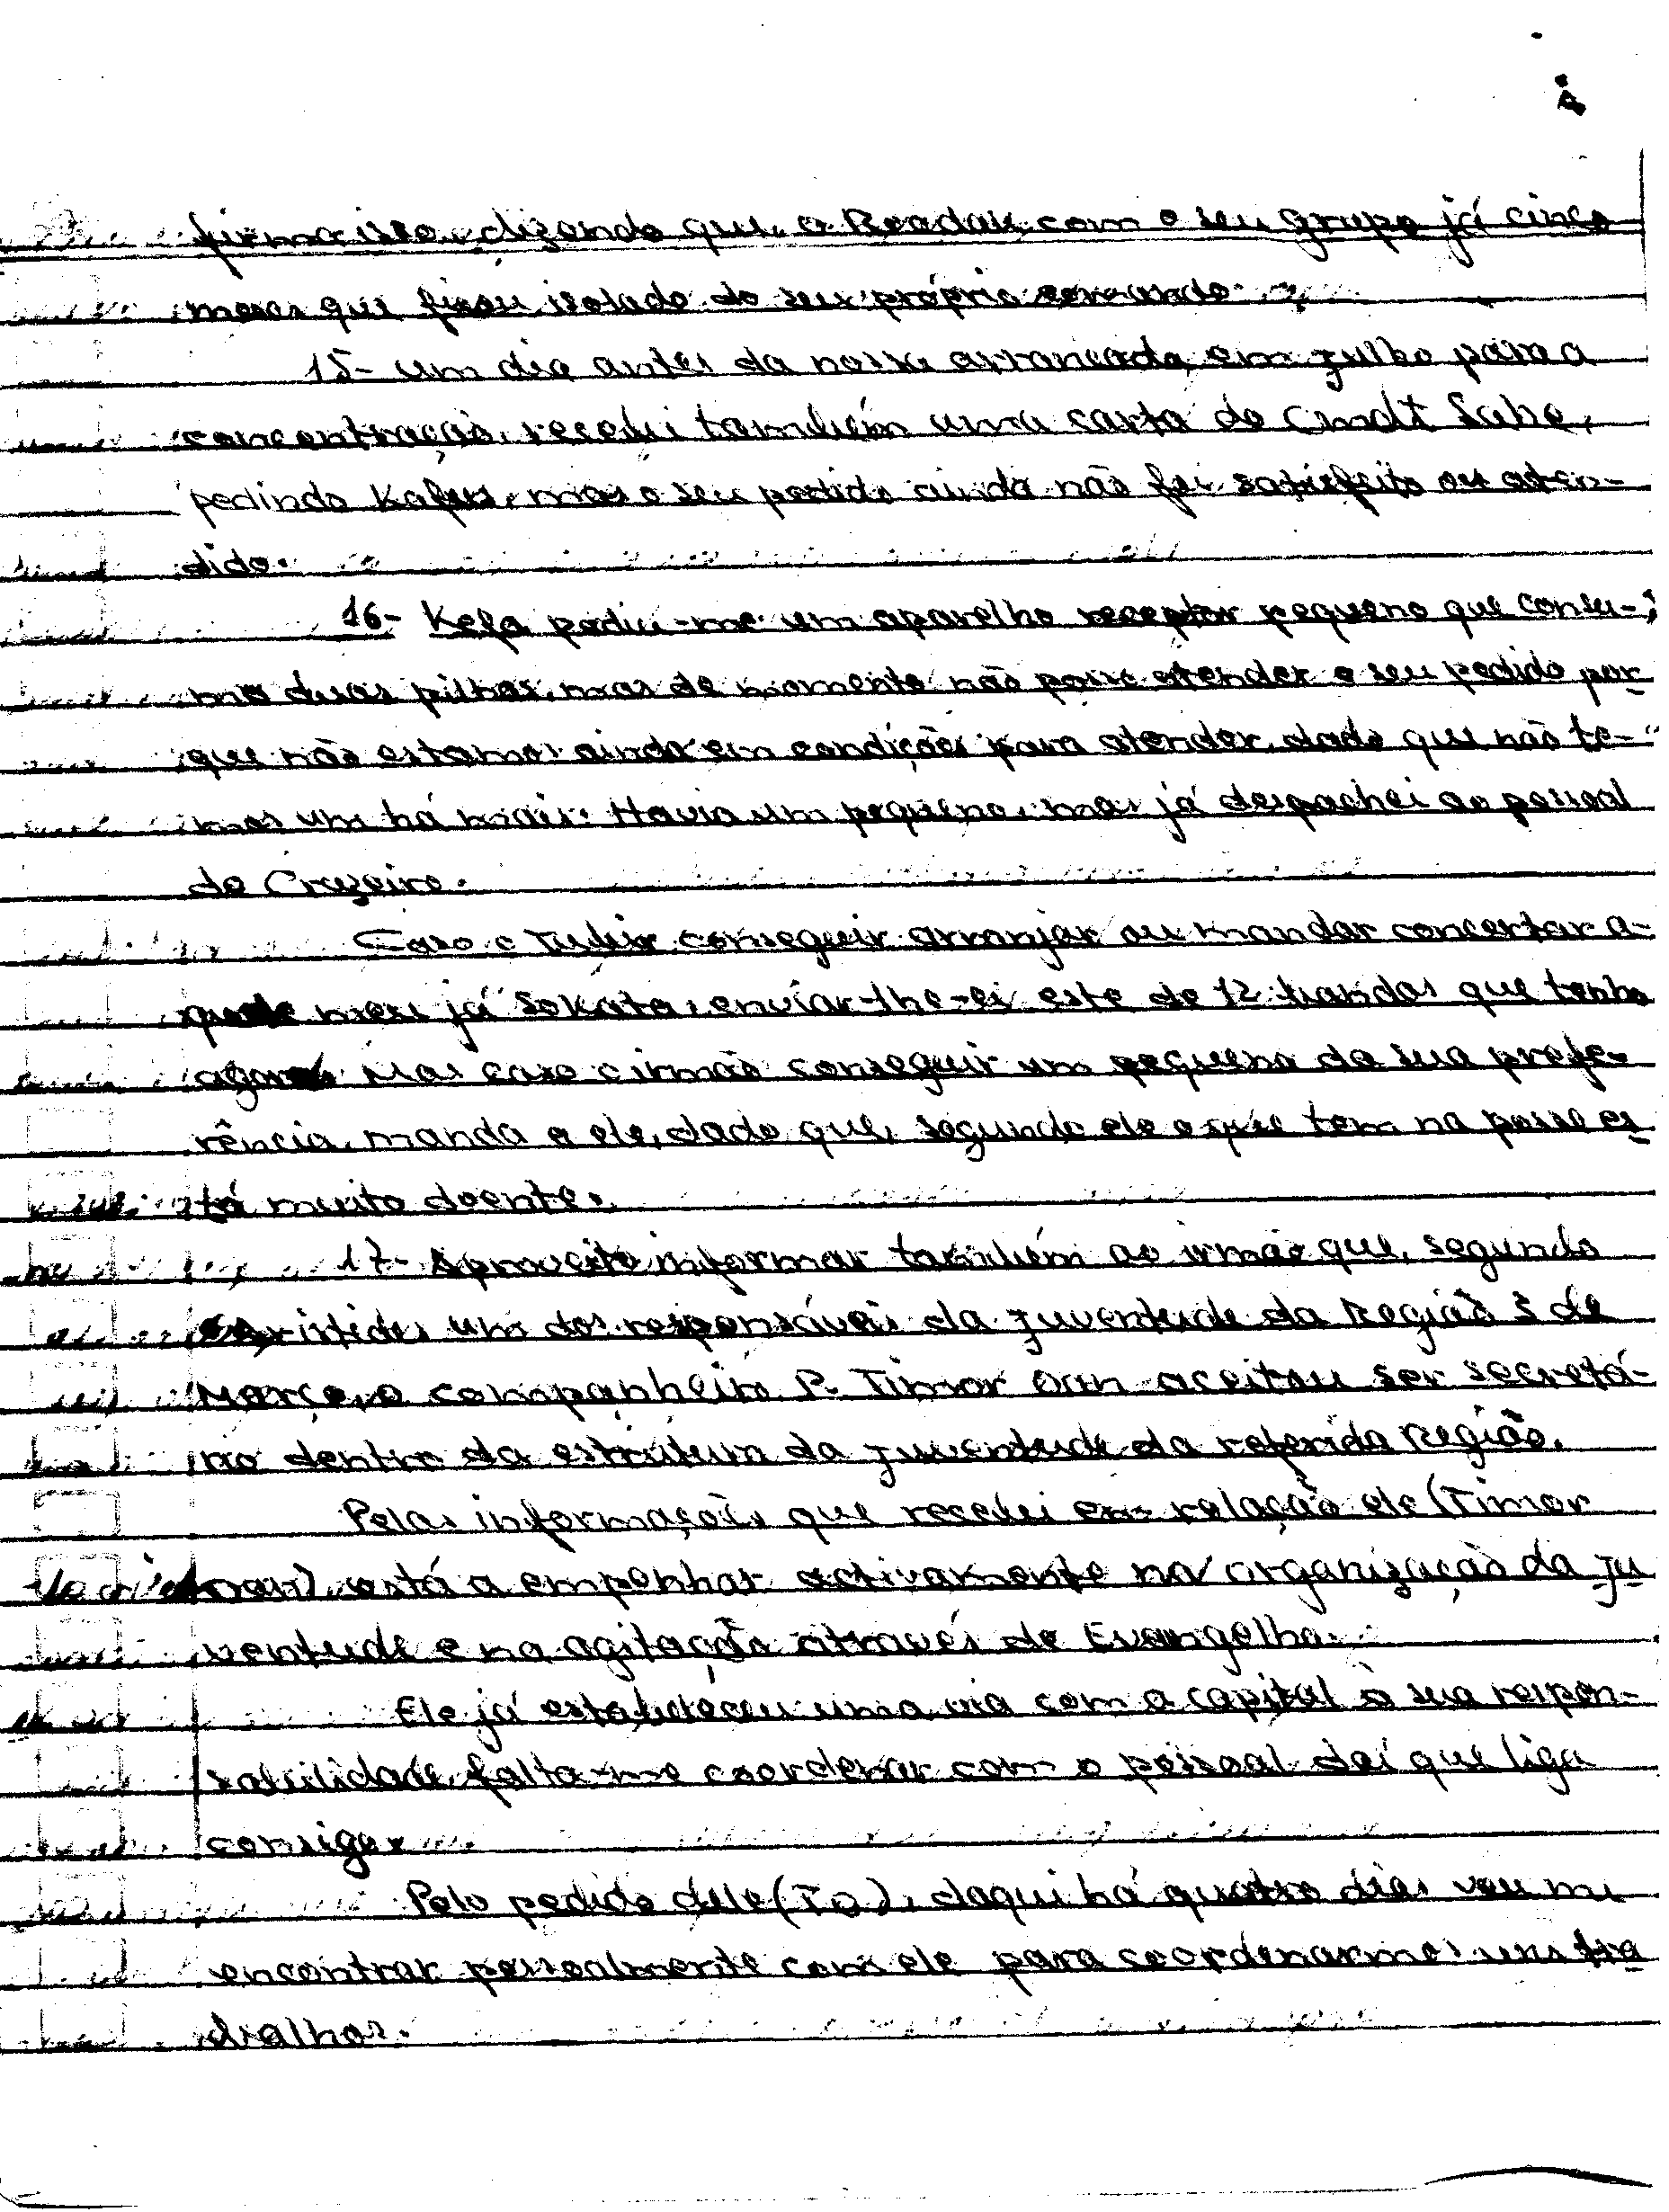 firma isso, dizendo que, o Readak com o seu grupo já cinco
meses que ficou isolado do seu próprio comando.
15- Um dia antes da nossa arrancada em Julho para a
concentração, recebi também uma carta do Cmdt Sabe,
pedindo Kafus, mas o seu pedido ainda não foi satisfeito ou aten-
dido.
16- Kefa pediu-me um aparelho receptor pequeno que consu-
ma duas pilhas, mas de momento não posso atender o seu pedido por
que não estamos ainda em condições para atender, dado que não te-
mos um há mais. Havia um pequeno, mas já despachei ao pessoal
do Cruzeiro.
Caso o conseguir arranjar ou mandar concertar a-
quele meu já Sokato, enviar-lhe-ei este de 12 bandas que tenho
agora. Mas caso o irmão conseguir um pequeno da sua prefe-
rência, manda a ele, dado que, segundo ele o que tem na posse es
tá muito doente.
17- Aproveito informar também ao irmão que, segundo
Aristides um dos responsáveis da Juventude da Região 3 de
Março, o companheiro P. Timor Oan aceitou ser secretá-
rio dentro da estrutura da Juventude da referida Região.
Pelas informações que recebi em relação ele (Timor
Oan), está a empenhar activamente na organização da Ju
ventude e na agitação através do Evangelho.
Ele já estabeleceu uma via com a capital à sua respon-
sabilidade, falta-me coordenar com o pessoal daí que liga
consigo.
Pelo pedido dele (T O), daqui há quatro dias vou me
encontrar pessoalmente com ele para coordenarmos uns tra
balhos.